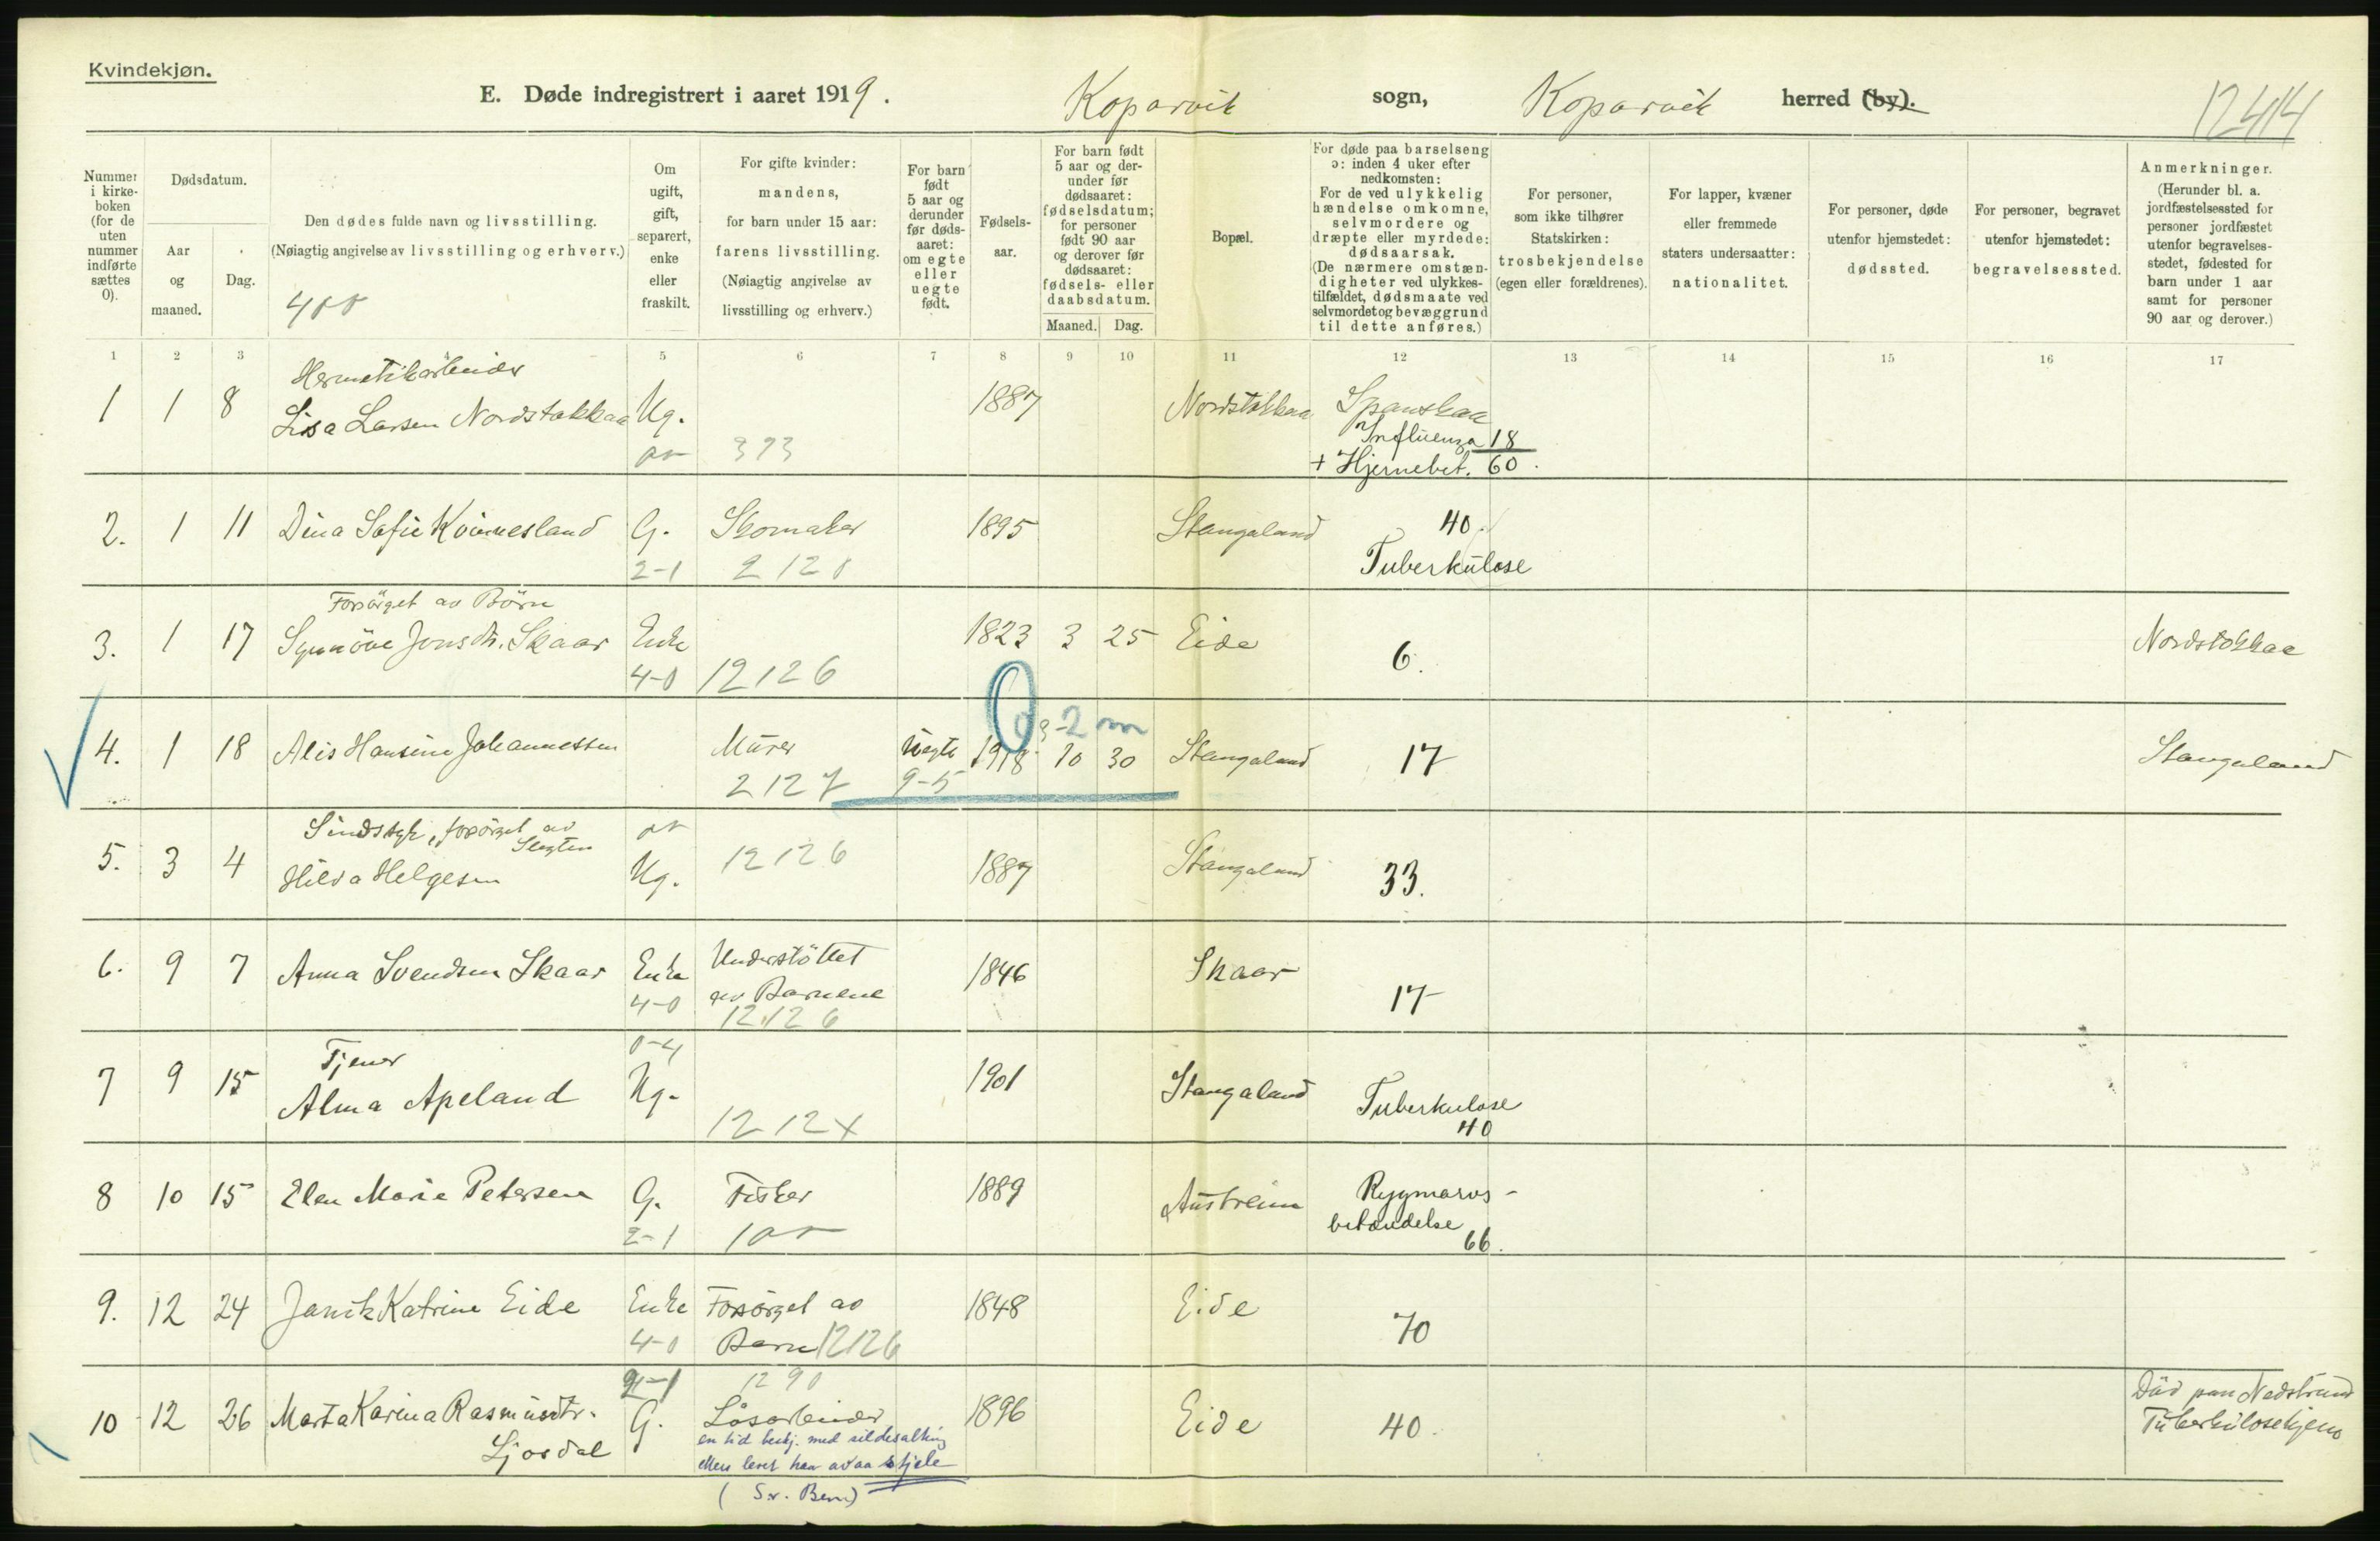 Kvindekjøn.
E. Døde indregistrert i aaret 1919. Koparvik sogn, Koparvik herred (by).
12414
Nummer i kirkeboken (for de uten nummer indførte sættes 0).
Dødsdatum.
Aar og maaned.
Dag.
Den dødes fulde navn og livsstilling.
(Nøiagtig angivelse av livsstilling og erhverv.)
Om ugift, gift, separert, enke eller fraskilt.
For gifte kvinder: mandens, for barn under 15 aar: farens livsstilling.
(Nøiagtig angivelse av livsstilling og erhverv.)
For barn født 5 aar og derunder før dødsaaret: om egte eller uegte født.
Fødselsaar.
For barn født 5 aar og derunder før dødsaaret: fødselsdatum; for personer født 90 aar og derover før dødsaaret: fødsels- eller daabsdatum.
Maaned. Dag.
Bopæl.
For døde paa barselseng ɔ: inden 4 uker efter nedkomsten:
For de ved ulykkelig hændelse omkomne, selvmordere og dræpte eller myrdede: dødsaarsak.
(De nærmere omstændigheter ved ulykkestilfældet, dødsmaate ved selvmordet og bevæggrund til dette anføres.)
For personer, som ikke tilhører Statskirken: trosbekjendelse (egen eller forældrenes).
For lapper, kvæner eller fremmede staters undersaatter: nationalitet.
For personer, døde utenfor hjemstedet: dødssted.
For personer, begravet utenfor hjemstedet: begravelsessted.
Anmerkninger.
(Herunder bl. a. jordfæstelsessted for personer jordfæstet utenfor begravelsesstedet, fødested for barn under 1 aar samt for personer 90 aar og derover.)
1 2 3 5 6 7 8 9 10 11 12 13 14 15 16 17
Hermetikarbeider
1 1 8 Lisa Larsen Nordstokkaa Ug. 1887 Nordstokkaa Spanskaa
Influenza 18
393 + Hjernebet. 60.
2. 1 11 Dina Sofie Kvinnesland G. Skomaker 1895 Stangaland 40
2-1 2 128 Tuberkulose
Forsörget av Börn
3. 1 17 Synnöve Jonsdtr. Skaar Enke 1823 3 25 Eide 6. Nordstokkaa
4-0 12 126
2 m
4. 1 18 Alis Hansine Johannessen Murer Uegte 1918 10 30 Stangaland 17 Stangaland
2 127 9-5
Sindssyk, forsörget av
Slegten
5. 3 4 Hilda Helgesen Ug. 12 126 1887 Stangaland 33.
6. 9 7 Anna Svendsen Skaar Enke Understöttet 1846 Skaar 17
4-0 av Barnene
12 126
0-4
Tjener
7 9 15 Alma Apeland Ug. 1901 Stangaland Tuberkulose
12 12x 40
8 10 15 Elen Marie Petersen G. Fisker 1889 Austreim Rygmarvs-
2-1 betændelse
66.
9. 12 24 Janik Katrine Eide Enke Forsörget av 1848 Eide 70
4-0 Barn 12126
2-1 12 90
10 12 26 Marta Karina Rasmusdtr. G. Lösarbeider 1896 Eide 40. Död paa Nedstrand
Ljosdal en tid beskj. med sildesalting Tuberkulosehjem
Men levet han av aa stjele
(S.v. Bem)